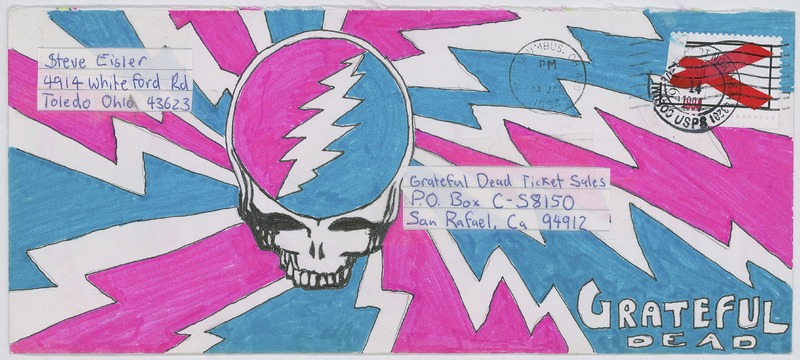 Steve Eisler
4914 Whiteford Rd.
Toledo Ohio 43623
PM
1994
USPS
Grateful Dead Ticket Sales
P.O. Box C-S8150
San Rafael, Ca 94912
GRATEFUL
DEAD